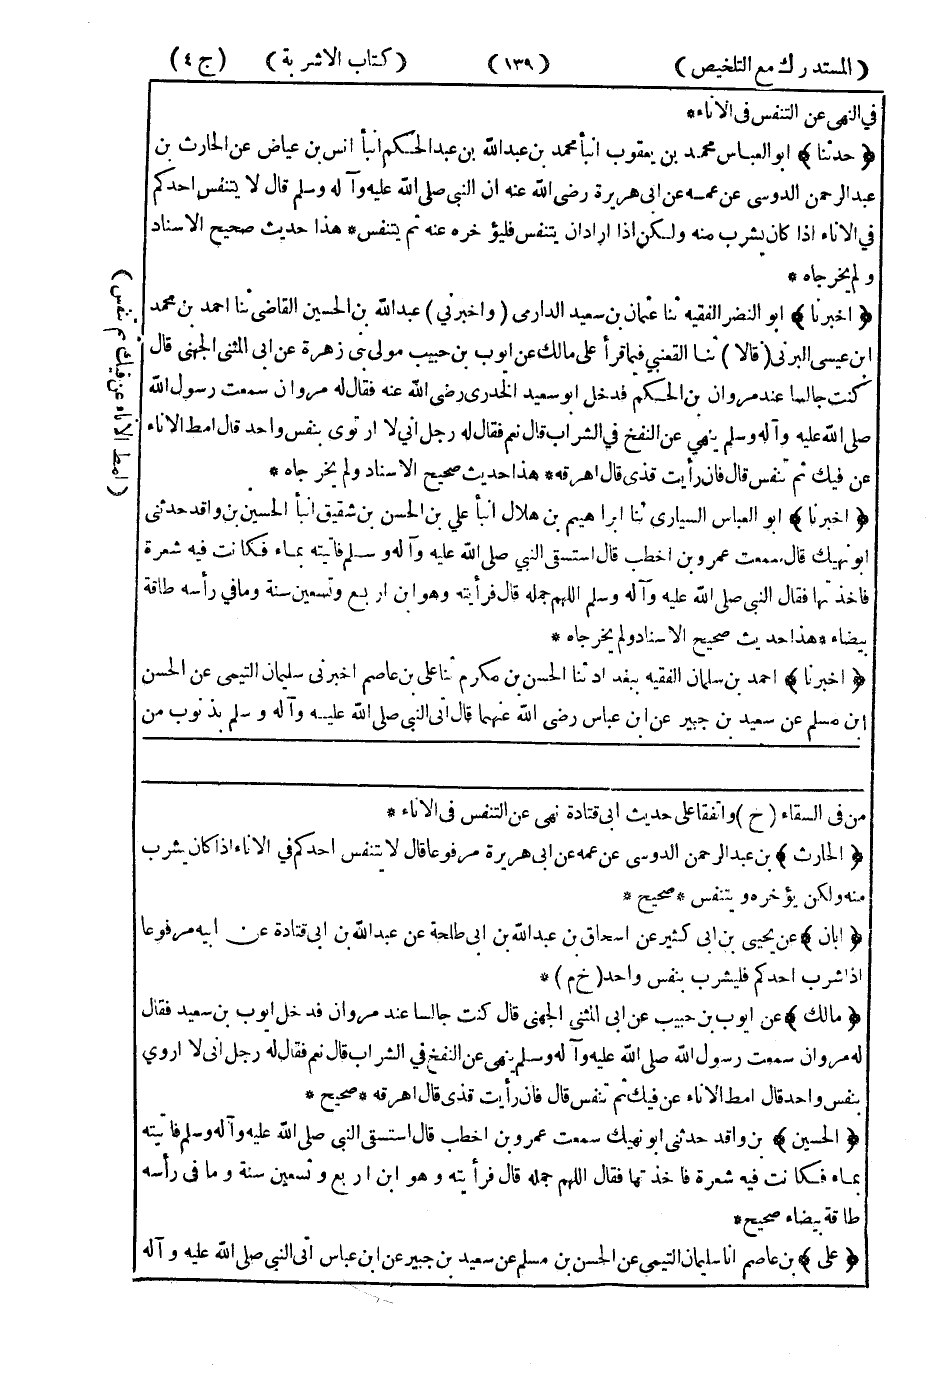 (المستدرك مع التلخيص) (١٣٩) (كتاب الاشربة) (ج ٤)
في النهي عن التنفس فى الاناء*
﴿ حدثنا ﴾ ابو العباس محمد بن يعقوب انبأ محمد بن عبدالله بن عبد الحكم انبأ انس بن عياض عن الحارث بن
عبد الرحمن الدوسى عن عمه عن ابى هريرة رضى الله عنه ان النبى صلى الله عليه وآله وسلم قال لا يتنفس احدكم
فى الاناء اذا كان يشرب منه ولكن اذا ارادان يتنفس فليؤخره عنه ثم يتنفس* هذا حديث صحيح الاسناد
ولم يخرجاه *
﴿ اخبرنا ﴾ ابو النضر الفقيه ثنا عثمان بن سعيد الدارمى (واخبرنى) عبدالله بن الحسين القاضى ثنا احمد بن محمد
ابن عيسى البرتى (قالا) ثنا القعنبى فيما قرأ على مالك عن ايوب بن حبيب مولى بنى زهرة عن ابى المثنى الجهنى قال
كنت جالسا عند مروان بن الحكم فدخل ابو سعيد الخدرى رضى الله عنه فقال له مروان سمعت رسول الله
صلى الله عليه وآله وسلم ينهى عن النفخ في الشراب قال نعم فقال له رجل انى لا ارتوى بنفس واحد قال امط الاناء
عن فيك ثم تنفس قال فان رأيت قذى قال اهرقه* هذا حديث صحيح الاسناد ولم يخرجاه *
﴿ اخبرنا ﴾ ابو العباس السيارى ثنا ابراهيم بن هلال انبأ علي بن الحسن بن شقيق انبأ الحسين بن واقد حدثنى
ابو نهيك قال سمعت عمرو بن اخطب قال استسقى النبي صلى الله عليه وآله وسلم فاتيته بماء فكانت فيه شعرة
فاخذتها فقال النبى صلى الله عليه وآله وسلم اللهم جمله قال فرأيته وهو ابن اربع وتسعين سنة وما في رأسه طاقة
بيضاء *هذا حديث صحيح الاسناد ولم يخرجاه *
﴿ اخبرنا ﴾ احمد بن سلمان الفقيه ببغداد ثنا الحسن بن مكرم ثنا على بن عاصم اخبرنى سليمان التيمى عن الحسن
ابن مسلم عن سعيد بن جبير عن ابن عباس رضى الله عنهما قال اتى النبى صلى الله عليه وآله وسلم بذنوب من
(امط الاناء عن فيك ثم تنفس)
من فى السقاء (خ) واتفقا على حديث ابى قتادة نهى عن التنفس فى الاناء *
﴿ الحارث ﴾ بن عبد الرحمن الدوسى عن عمه عن ابى هريرة مرفوعا قال لا يتنفس احدكم في الاناء اذا كان يشرب
منه ولكن يؤخره ويتنفس *صحيح *
﴿ ابان ﴾ عن يحيى بن ابى كثير عن اسحاق بن عبدالله بن ابى طلحة عن عبدالله بن ابى قتادة عن ابيه مرفوعا
اذا شرب احدكم فليشرب بنفس واحد (خ م) *
﴿ مالك ﴾ عن ايوب بن حبيب عن ابى المثنى الجهنى قال كنت جالسا عند مروان فدخل ايوب بن سعيد فقال
له مروان سمعت رسول الله صلى الله عليه وآله وسلم ينهى عن النفخ في الشراب قال نعم فقال له رجل انى لا اروي
بنفس واحد قال امط الاناء عن فيك ثم تنفس قال فان رأيت قذى قال اهرقه *صحيح *
﴿ الحسين ﴾ بن واقد حدثنى ابو نهيك سمعت عمرو بن اخطب قال استسقى النبى صلى الله عليه وآله وسلم فاتيته
بماء فكانت فيه شعرة فاخذتها فقال اللهم جمله قال فرأيته وهو ابن اربع وتسعين سنة وما فى رأسه
طاقة بيضاء صحيح*
﴿ على ﴾ بن عاصم انا سليمان التيمى عن الحسن بن مسلم عن سعيد بن جبير عن ابن عباس اتى النبى صلى الله عليه وآله